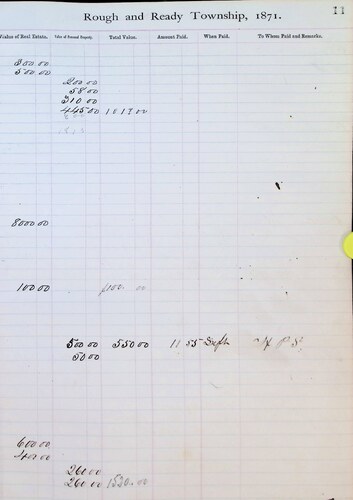 Rough and Ready Township, 1871.
11
Value of Real Estate. Value of Personal Property. Total Value. Amount Paid. When Paid. To Whom Paid and Remarks.
300.00
500.00
200.00
58.00
310.00
445.00
8000.00
100.00
500.00 550.00 11 55
50.00
600.00
400.00
260.00
260.00 1520.00